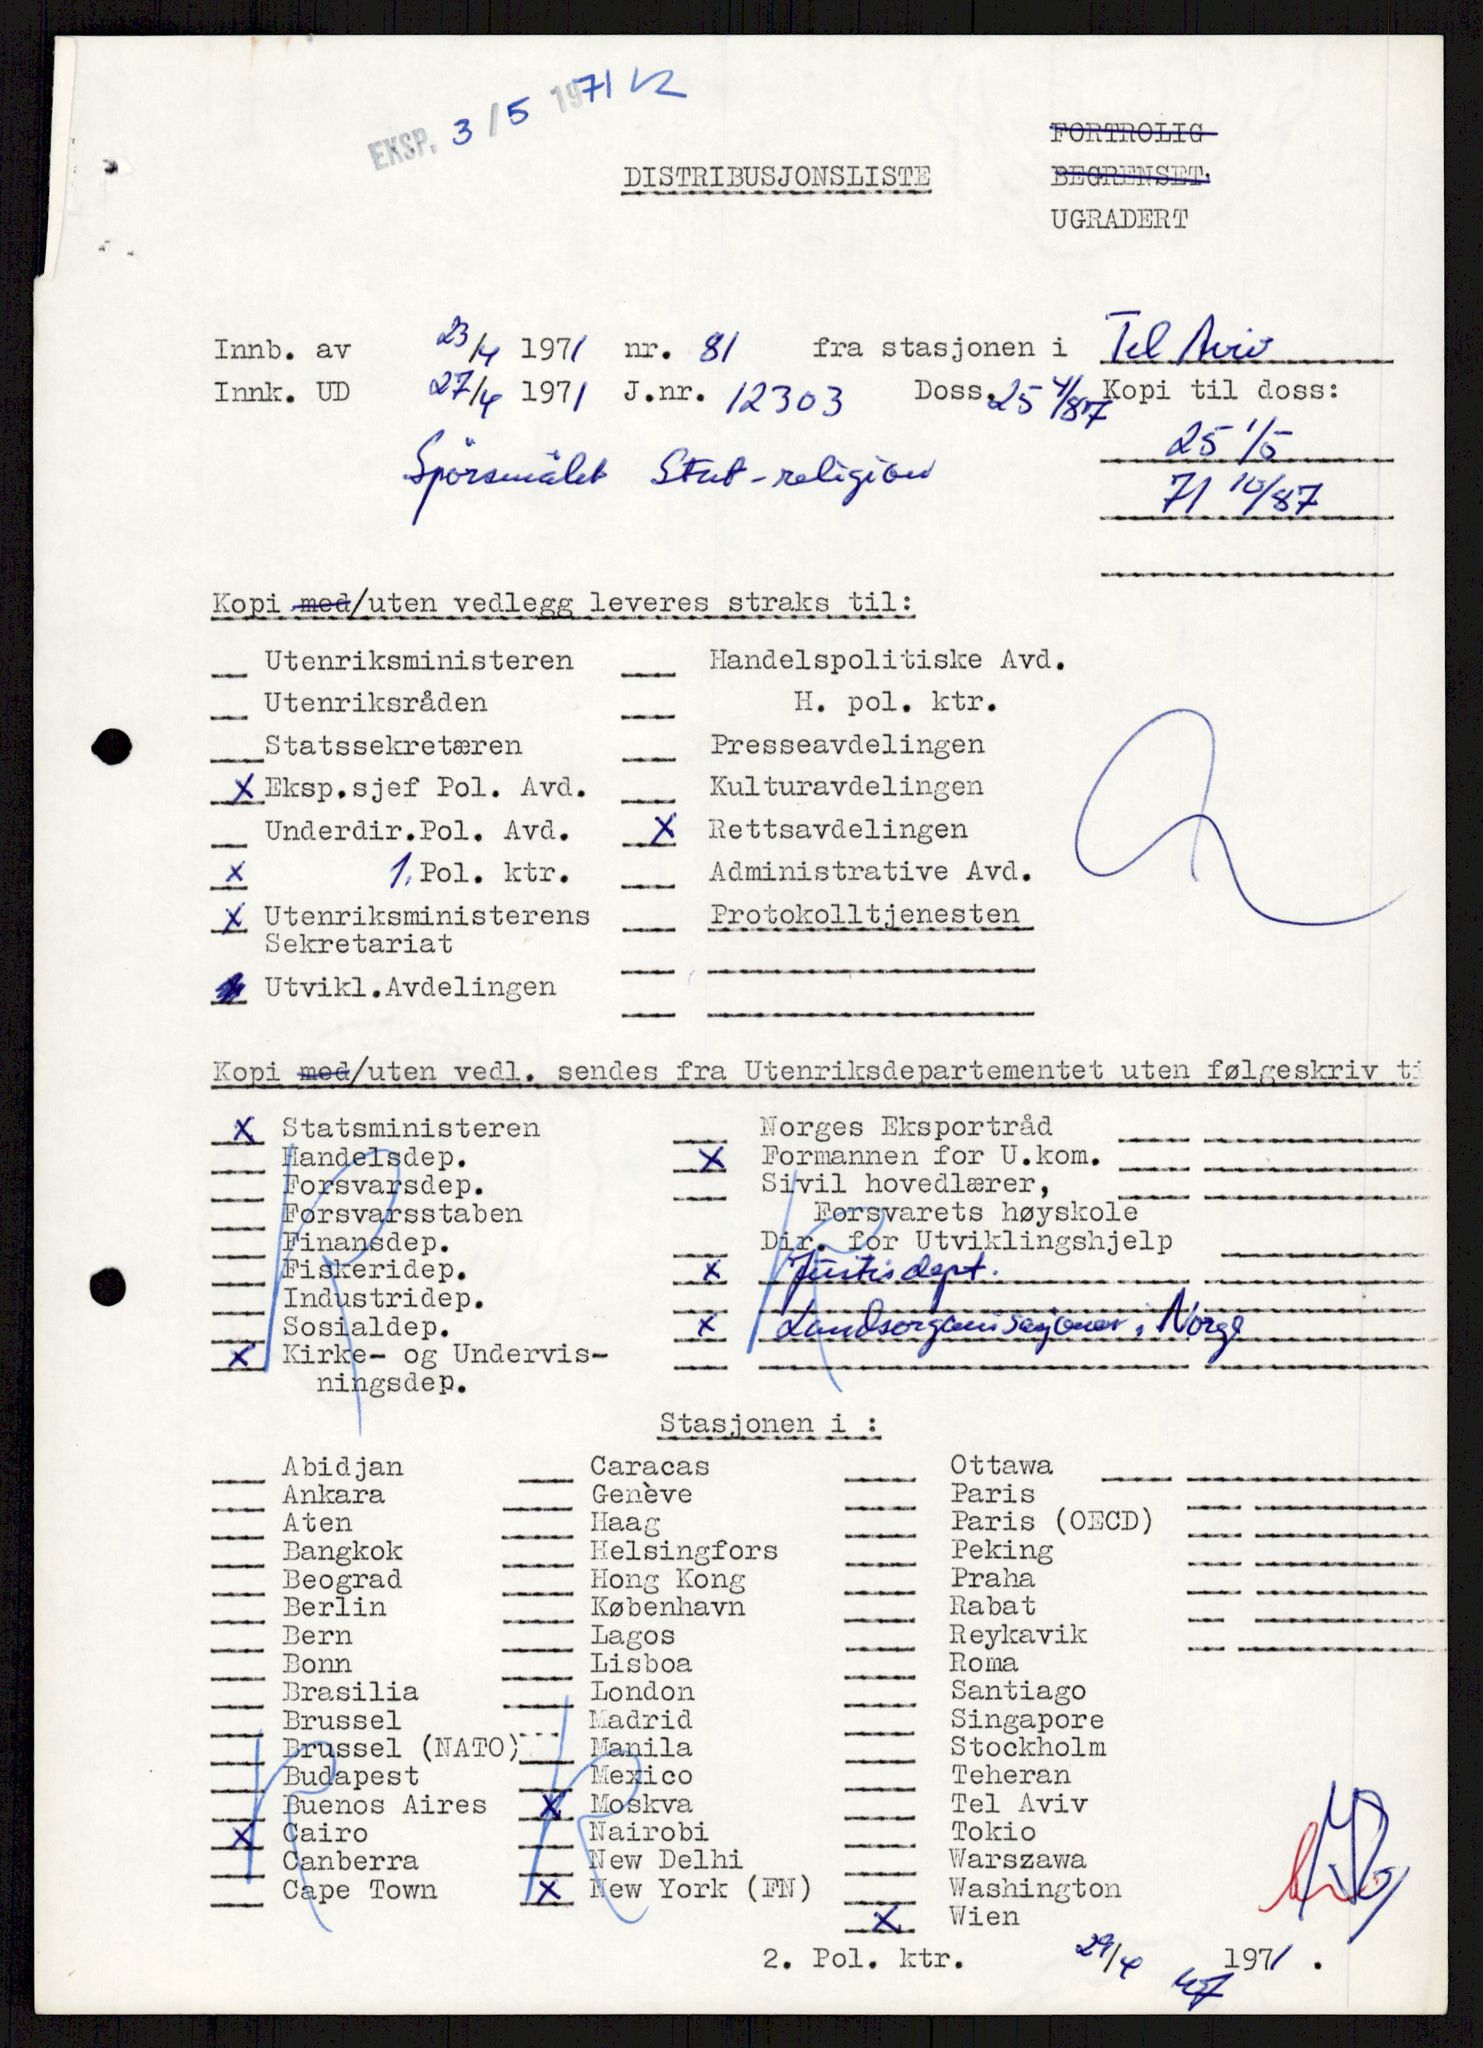 EKSP. 3/5 1971
FORTROLIG
DISTRIBUSJONSLISTE BEGRENSET.
UGRADERT
Innb. av 23/4 1971 nr. 81 fra stasjonen i Tel Aviv
Innk. UD 27/4 1971 J.nr. 12303 Doss. 25 4/87 Kopi til doss:
25 1/5
Spørsmålet Stat-religion
71 10/87
Kopi med/uten vedlegg leveres straks til:
Utenriksministeren Handelspolitiske Avd.
Utenriksråden H. pol. ktr.
Statssekretæren Presseavdelingen
X Eksp.sjef Pol. Avd. Kulturavdelingen
Underdir.Pol. Avd. X Rettsavdelingen
X 1. Pol. ktr. Administrative Avd.
X Utenriksministerens Protokolltjenesten
Sekretariat
Utvikl.Avdelingen
Kopi med/uten vedl. sendes fra Utenriksdepartementet uten følgeskriv ti
X Statsministeren Norges Eksportråd
Handelsdep. X Formannen for U.kom.
Forsvarsdep. Sivil hovedlærer,
Forsvarsstaben Forsvarets høyskole
Finansdep. Dir. for Utviklingshjelp
Fiskeridep. X Justisdept.
Industridep.
Sosialdep. X Landsorganisasjonen i Norge
X Kirke- og Undervis-
ningsdep.
Stasjonen i :
Abidjan Caracas Ottawa
Ankara Genève Paris
Aten Haag Paris (OECD)
Bangkok Helsingfors Peking
Beograd Hong Kong Praha
Berlin København Rabat
Bern Lagos Reykavik
Bonn Lisboa Roma
Brasilia London Santiago
Brussel Madrid Singapore
Brussel (NATO) Manila Stockholm
Budapest Mexico Teheran
Buenos Aires X Moskva Tel Aviv
X Cairo Nairobi Tokio
Canberra New Delhi Warszawa
Cape Town X New York (FN) Washington
X Wien
2. Pol. ktr. 29/4 1971.